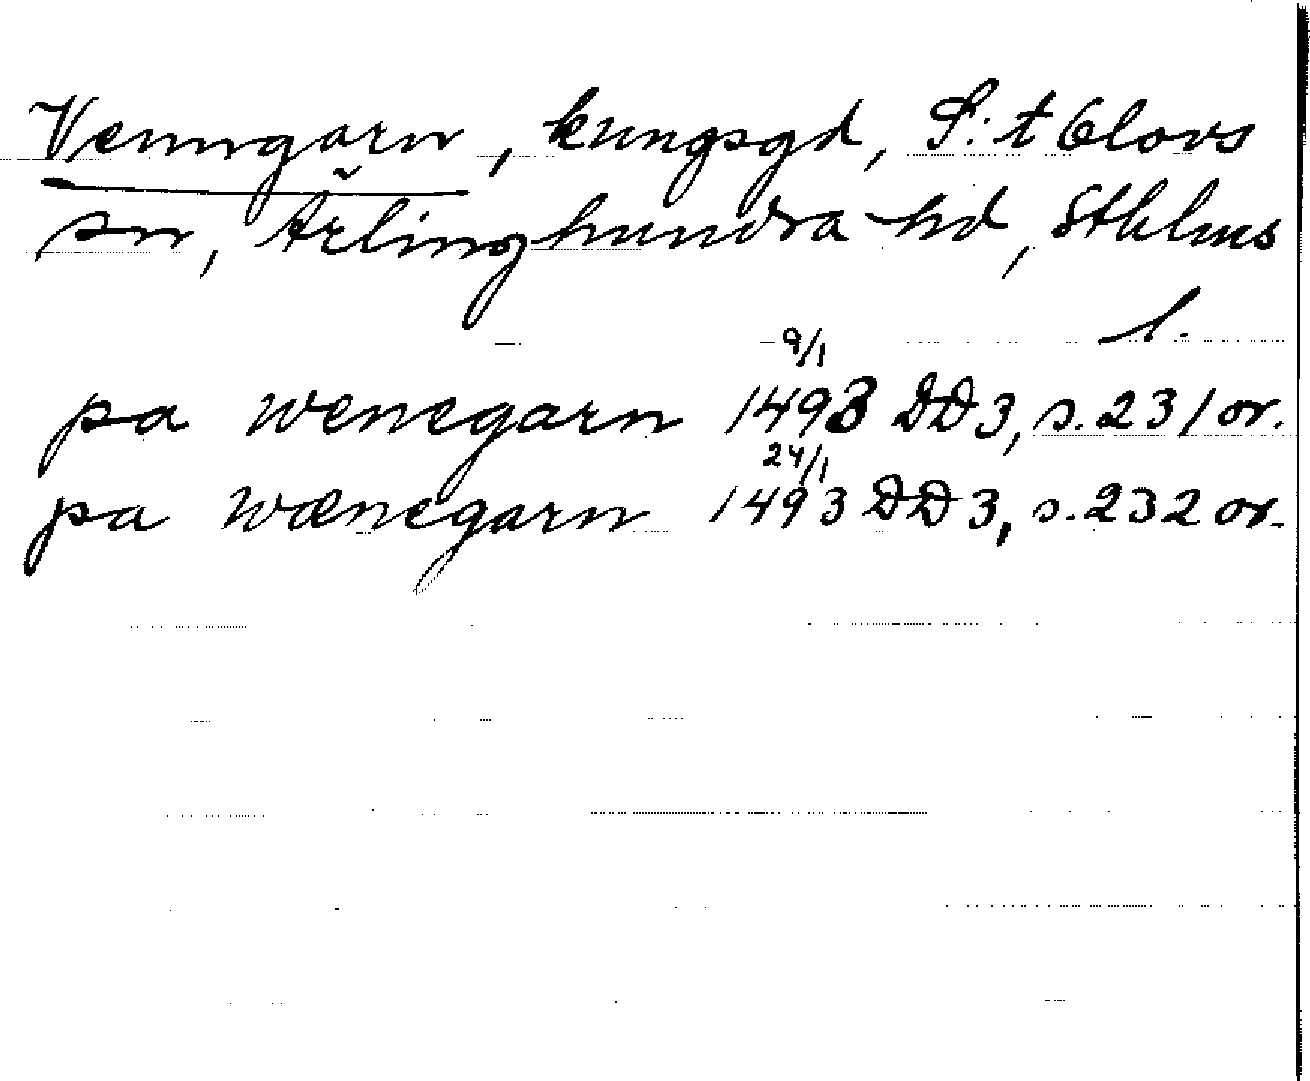 Venngarn, kungsgd, S:t Olovs
sn, Ärlinghundra hd, Sthlms
l.
9/1
pa wenegarn 1493 DD3, s. 231 or.
24/1
pa wænegarn 1493 DD3, s. 232 or.